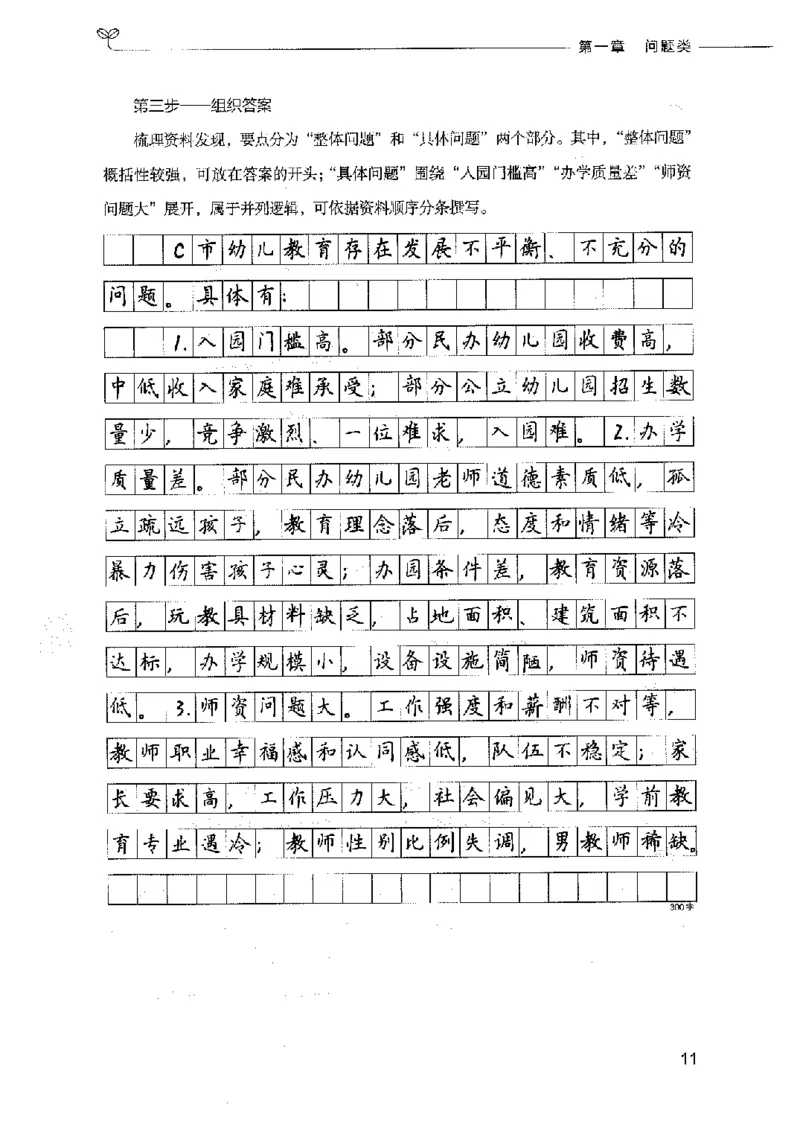 第一章 问题类
第三步——组织答案
梳理资料发现，要点分为“整体问题”和“具体问题”两个部分。其中，“整体问题”
概括性较强，可放在答案的开头；“具体问题”围绕“入园门槛高”“办学质量差”“师资
问题大”展开，属于并列逻辑，可依据资料顺序分条撰写。
C市幼儿教育存在发展不平衡、不充分的
问题。具体有：
1.入园门槛高。部分民办幼儿园收费高，
中低收入家庭难承受；部分公立幼儿园招生数
量少，竞争激烈、一位难求，入园难。2.办学
质量差。部分民办幼儿园老师道德素质低，孤
立疏远孩子，教育理念落后，态度和情绪等冷
暴力伤害孩子心灵；办园条件差，教育资源落
后，玩教具材料缺乏，占地面积、建筑面积不
达标，办学规模小，设备设施简陋，师资待遇
低。3.师资问题大。工作强度和薪酬不对等，
教师职业幸福感和认同感低，队伍不稳定；家
长要求高，工作压力大，社会偏见大，学前教
育专业遇冷；教师性别比例失调，男教师稀缺。
300字
11